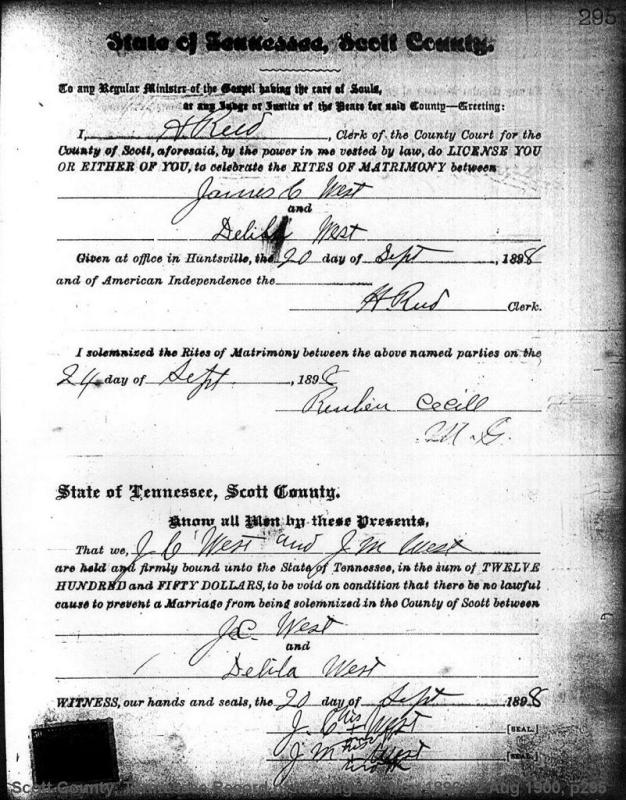 295
State of Tennessee, Scott County.
To any Regular Minister of the Gospel having the care of Souls,
or any Judge or Justice of the Peace for said County—Greeting:
I, H Reed, Clerk of the County Court for the
County of Scott, aforesaid, by the power in me vested by law, do LICENSE YOU
OR EITHER OF YOU, to celebrate the RITES OF MATRIMONY between
James C West
and
Delila West
Given at office in Huntsville, the 20 day of Sept, 1898
and of American Independence the
H Reed Clerk.
I solemnized the Rites of Matrimony between the above named parties on the
24 day of Sept, 1898
Reuben Cecill
M. G.
State of Tennessee, Scott County.
Know all Men by these Presents,
That we, J C West and J M West
are held and firmly bound unto the State of Tennessee, in the sum of TWELVE
HUNDRED and FIFTY DOLLARS, to be void on condition that there be no lawful
cause to prevent a Marriage from being solemnized in the County of Scott between
J.C. West
and
Delila West
WITNESS, our hands and seals, the 20 day of Sept 1898
J. C his + West [SEAL.]
J. M his West [SEAL.]
mark
Scott County, Tennessee Record 2 Aug 1900, p295